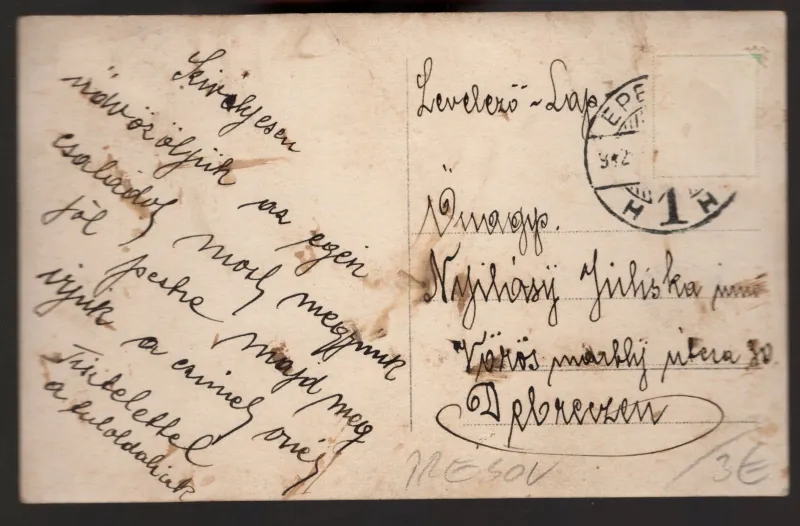 Szivélyesen
üdvözöljük az egén
családot most megyünk
föl pestre majd meg
irjuk a czimet onét
Tisztelettel
a tuloldaliak
Levelező-Lap
EPE
1
H H
Önagy.
Nyilásy Juliska
Vörös marthy utcza 30.
Debreczen
PRESOV
/3E